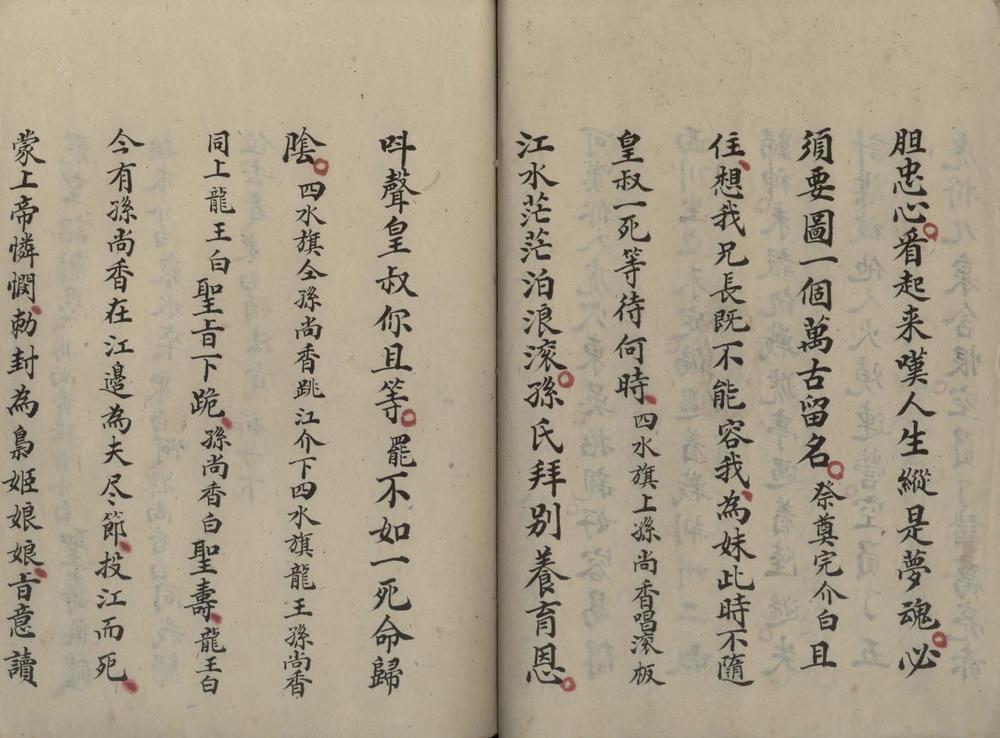 胆忠心看起来嘆人生縱是夢魂必
須要圖一個萬古留名祭奠完介白且
住想我兄長既不能容我為妹此時不隨
皇叔一死等待何時四水旗上孫尚香唱滚板
江水茫茫泊浪滚孫氏拜别養育恩
呌聲皇叔你且等罷不如一死命歸
陰四水旗仝孫尚香跳江介下四水旗龍王孫尚香
同上龍王白聖旨下跪孫尚香白聖壽龍王白
今有孫尚香在江邊為夫尽節投江而死
蒙上帝憐憫勅封為梟姬娘娘旨意讀